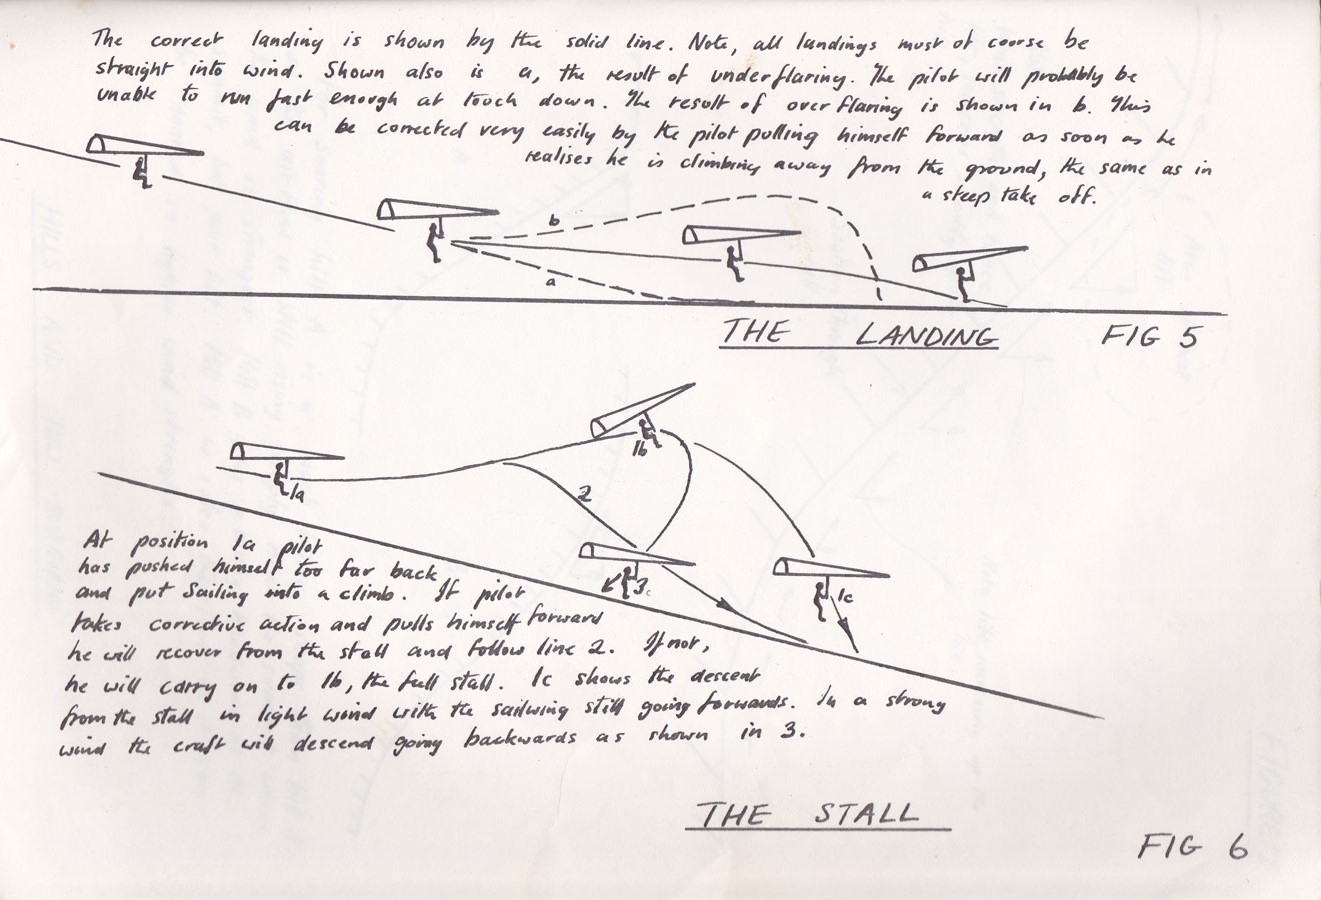 The correct landing is shown by the solid line. Note, all landings must of course be
straight into wind. Shown also is a, the result of underflaring. The pilot will probably be
unable to run fast enough at touch down. The result of over flaring is shown in b. This
can be corrected very easily by the pilot pulling himself forward as soon as he
realises he is climbing away from the ground, the same as in
a steep take off.
b
a
THE LANDING FIG 5
1b
1a
2
3c
1c
At position 1a pilot
has pushed himself too far back
and put Sailing into a climb. If pilot
takes corrective action and pulls himself forward
he will recover from the stall and follow line 2. If not,
he will carry on to 1b, the full stall. 1c shows the descent
from the stall in light wind with the sailwing still going forwards. In a strong
wind the craft will descend going backwards as shown in 3.
THE STALL
FIG 6